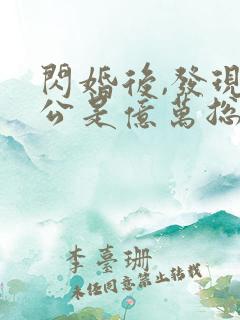 閃婚後,發現
公是億萬総
李臺珊
未経同意禁止転載